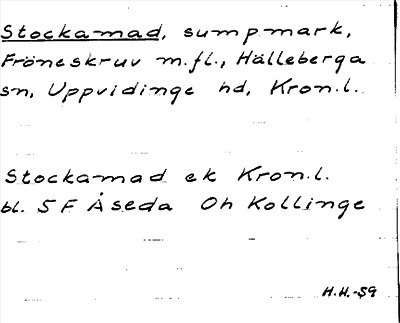 Stockamad, sumpmark,
Fröneskruv m.fl., Hälleberga
sn, Uppvidinge hd, Kron.l.
Stockamad ek Kron.l.
bl. 5 F Åseda Oh Kollinge
H.H.-59